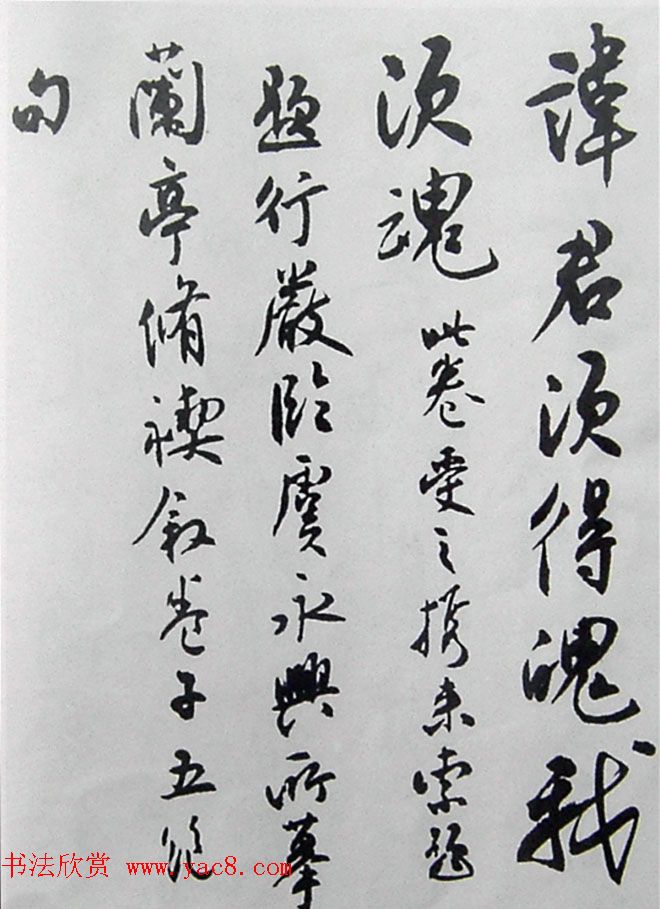 諱君須得魄我
須魂 此卷受之携来索題
題行嚴臨虞永興所摹
蘭亭脩禊叙卷子五絶
句
书法欣赏 www.yac8.com